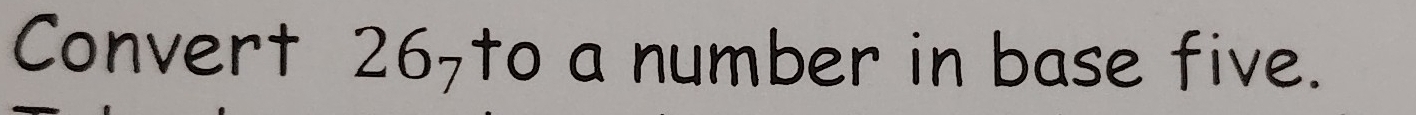 Convert 26₇ to a number in base five.